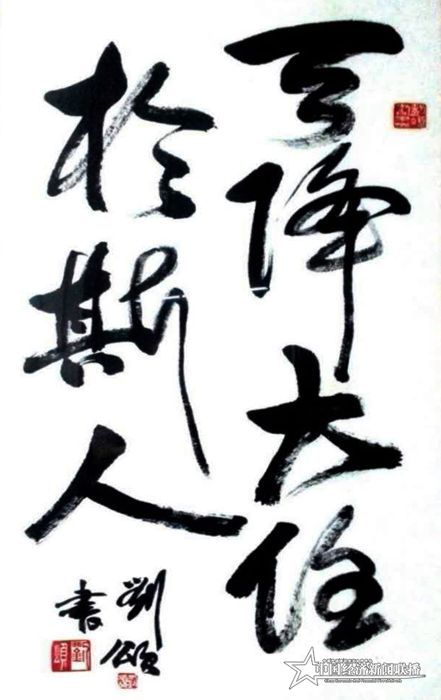 天降大任
於斯人
劉頌
書
中国经济新闻联播